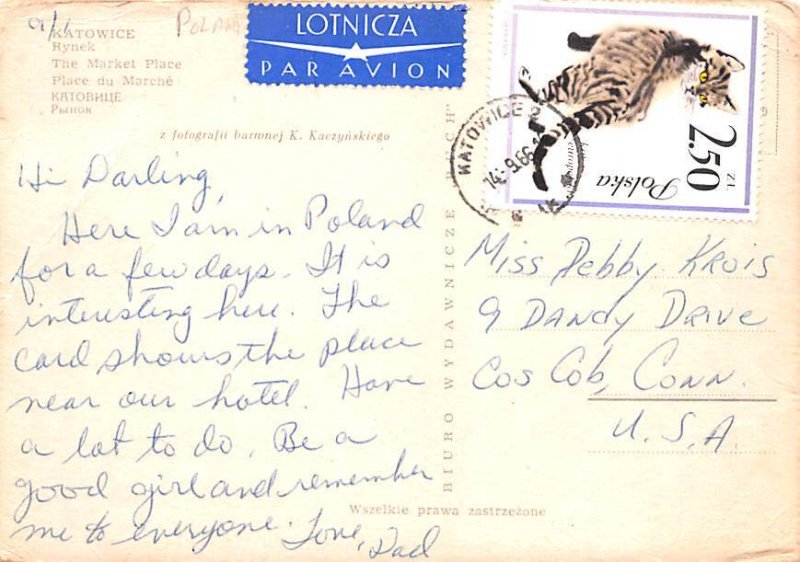 9/1
POLAND
KATOWICE
Rynek
The Market Place
Place du Marché
КАТОВИЦЕ
Рынок
z fotografii barwnej K. Kaczyńskiego
LOTNICZA
PAR AVION
Polska
2.50
ZŁ
KATOWICE 2
14.-9.66
Hi Darling,
Here I am in Poland
for a few days. It is
interesting here. The
card shows the place
near our hotel. Have
a lot to do. Be a
good girl and remember
me to everyone. Love, Dad
BIURO WYDAWNICZE „RUCH"
Miss Debby Krois
9 DANDY DRIVE
Cos Cob, CONN.
U.S.A.
Wszelkie prawa zastrzeżone